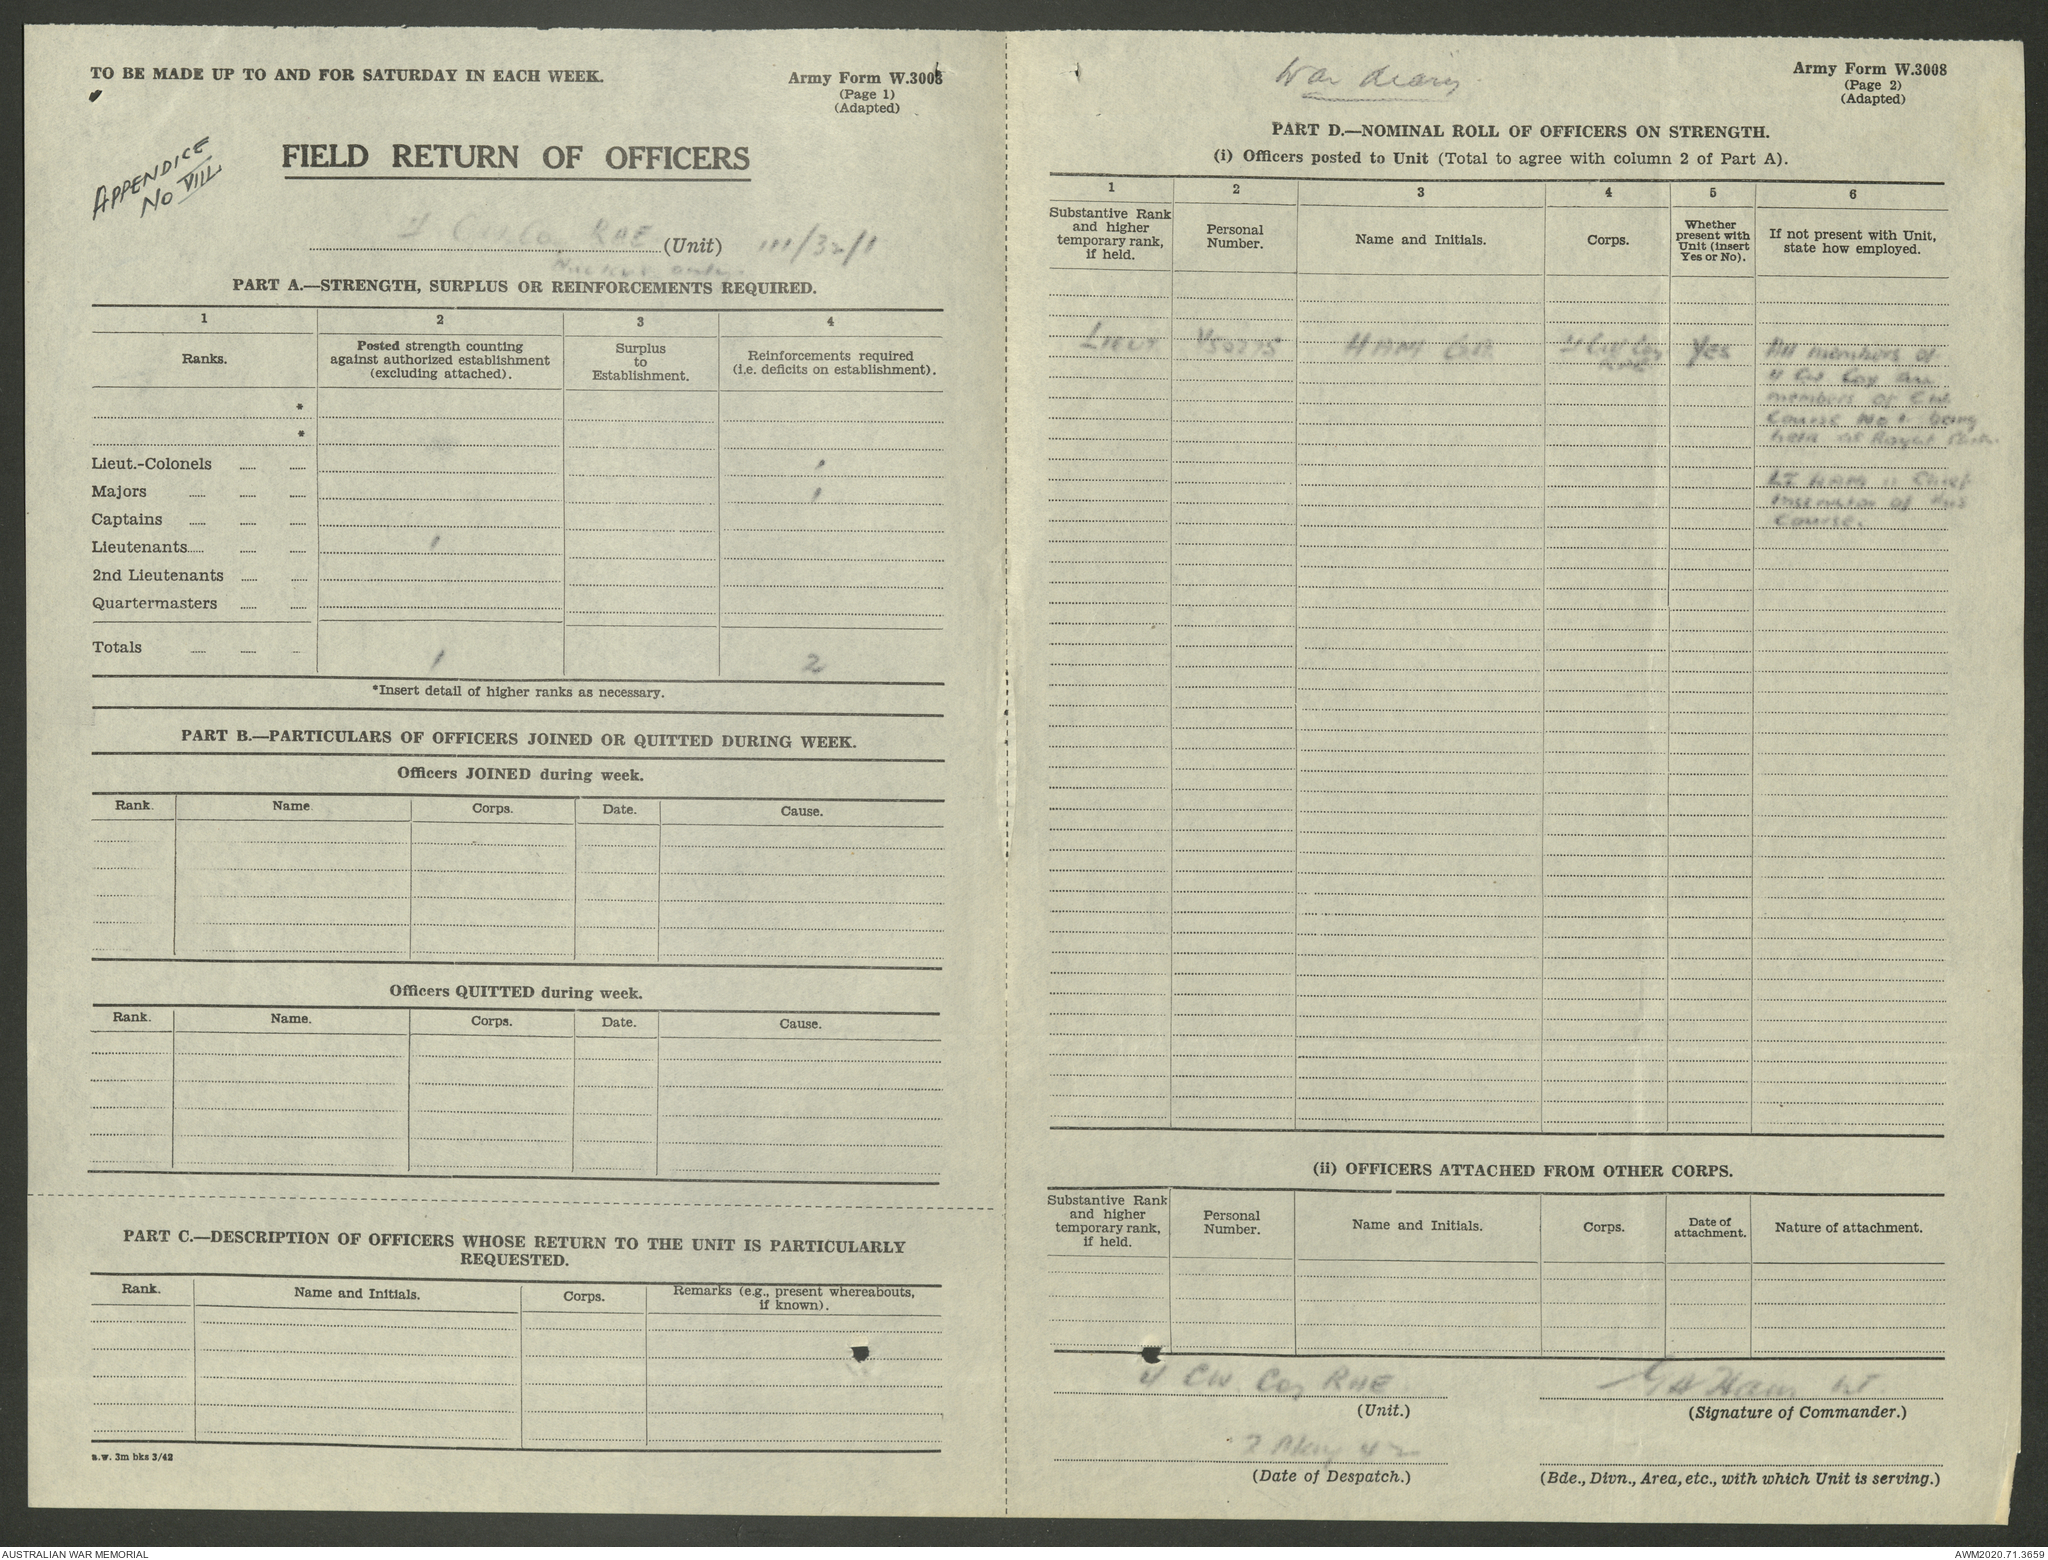 TO BE MADE UP TO AND FOR SATURDAY IN EACH WEEK.
Army Form W.3008
(Page 1)
(Adapted)
APPENDICE
No VIII
FIELD RETURN OF OFFICERS
RAE (Unit) 111/32/1
PART A.—STRENGTH, SURPLUS OR REINFORCEMENTS REQUIRED.
1 2 3 4
Ranks.
Posted strength counting
against authorized establishment
(excluding attached).
Surplus
to
Establishment.
Reinforcements required
(i.e. deficits on establishment).
*
*
Lieut.-Colonels 1
Majors 1
Captains
Lieutenants 1
2nd Lieutenants
Quartermasters
Totals 1 2
*Insert detail of higher ranks as necessary.
PART B.—PARTICULARS OF OFFICERS JOINED OR QUITTED DURING WEEK.
Officers JOINED during week.
Rank. Name. Corps. Date. Cause.
Officers QUITTED during week.
Rank. Name. Corps. Date. Cause.
PART C.—DESCRIPTION OF OFFICERS WHOSE RETURN TO THE UNIT IS PARTICULARLY
REQUESTED.
Rank. Name and Initials. Corps.
Remarks (e.g., present whereabouts,
if known).
a.w. 3m bks 3/42
War diary
Army Form W.3008
(Page 2)
(Adapted)
PART D.—NOMINAL ROLL OF OFFICERS ON STRENGTH.
(i) Officers posted to Unit (Total to agree with column 2 of Part A).
1 2 3 4 5 6
Substantive Rank
and higher
temporary rank,
if held.
Personal
Number.
Name and Initials.
Corps.
Whether
present with
Unit (insert
Yes or No).
If not present with Unit,
state how employed.
LIEUT V50275 HAM GA 4 CW Coy YES All members of
RAE 4 CW Coy are
members of CW
Course No 1 being
held at Royal Park.
LT HAM is Chief
Instructor of this
Course.
(ii) OFFICERS ATTACHED FROM OTHER CORPS.
Substantive Rank
and higher
temporary rank,
if held.
Personal
Number.
Name and Initials.
Corps.
Date of
attachment.
Nature of attachment.
4 CW Coy RAE
(Unit.)
GA Ham LT
(Signature of Commander.)
2 May 42
(Date of Despatch.)
(Bde., Divn., Area, etc., with which Unit is serving.)
AUSTRALIAN WAR MEMORIAL
AWM2020.71.3659